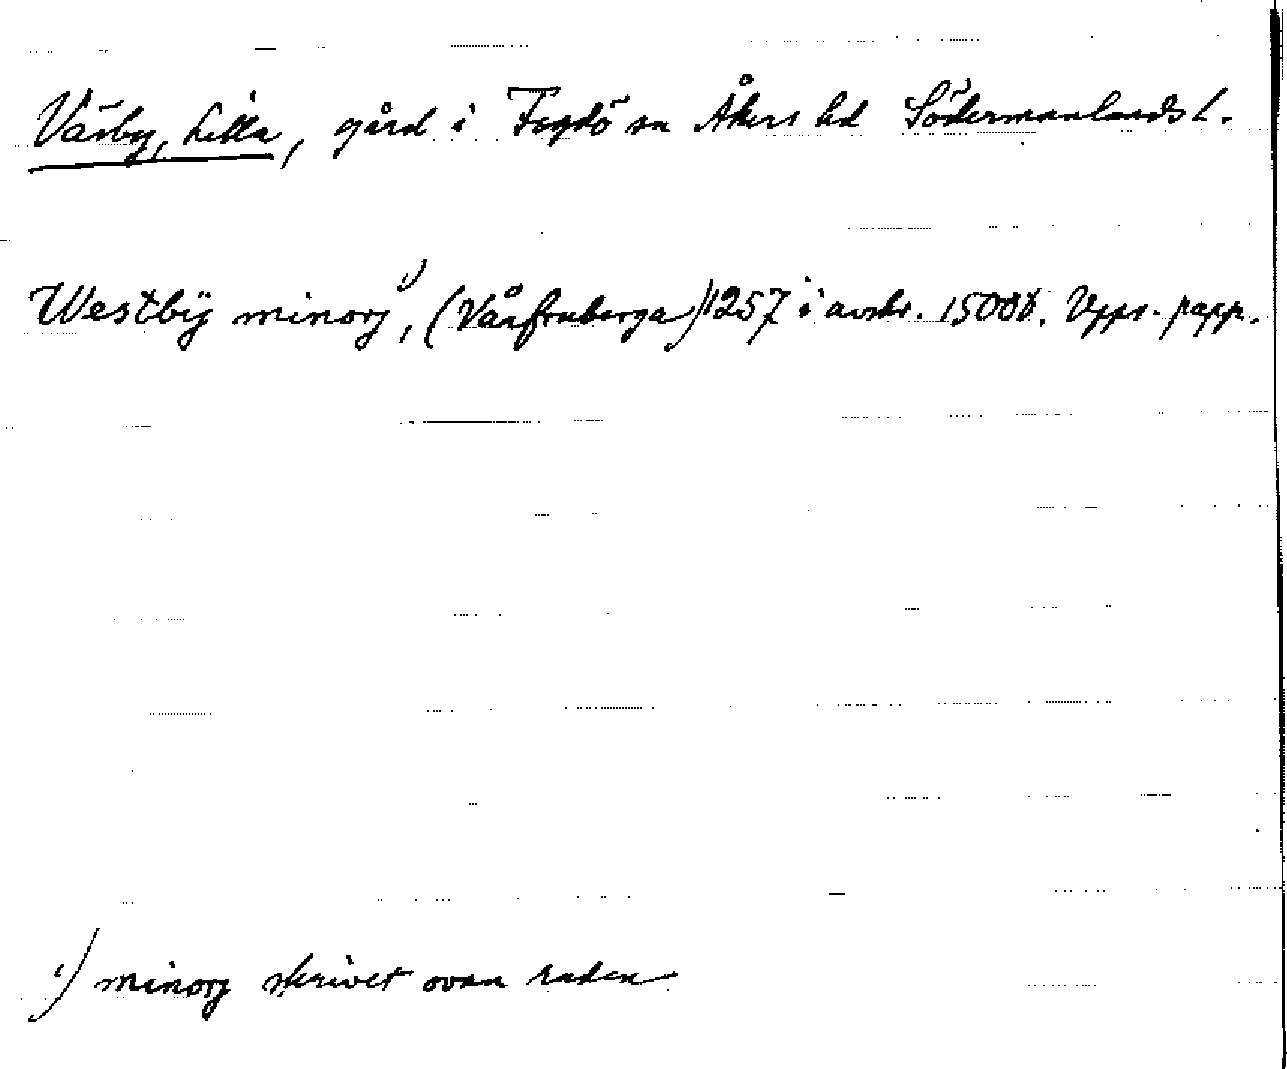 Väsby, Lilla, gård i Fogdö sn Åkers hd Södermanlands l.
Westbÿ minorj ¹), (Vårfruberga) 1257 i avskr. 1500t. Upps. papp.
¹) minorj skrivet ovan raden